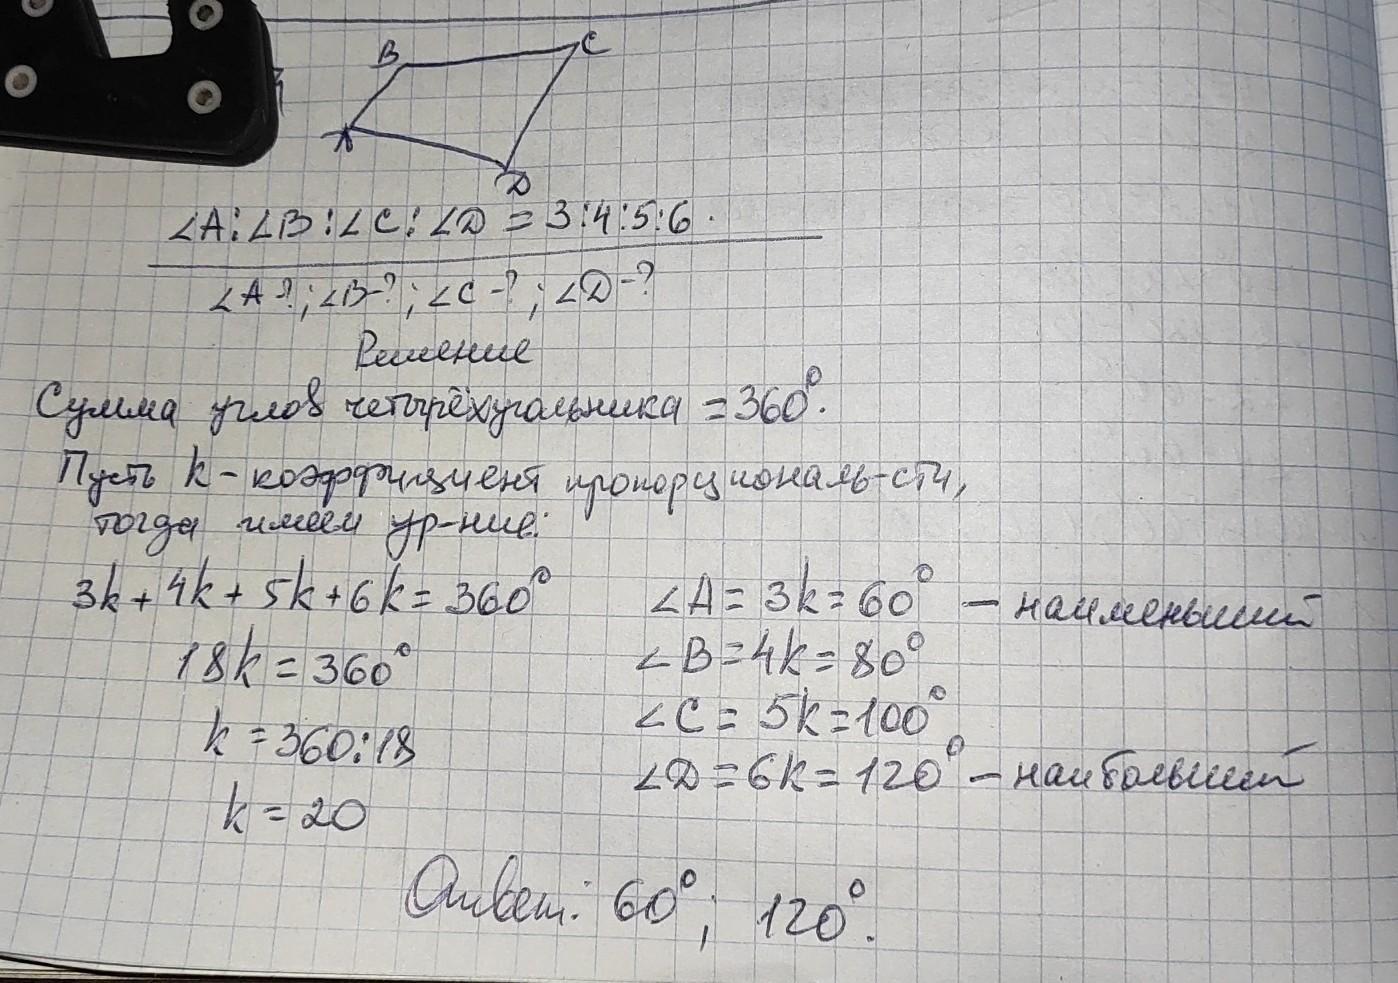 B
C
A
D
∠A:∠B:∠C:∠D = 3:4:5:6.
∠A-?; ∠B-?; ∠C-?; ∠D-?
Решение
Сумма углов четырёхугольника = 360°.
Пусть k - коэффициент пропорциональ-сти,
тогда имеем ур-ние:
3k + 4k + 5k + 6k = 360°
18k = 360°
k = 360:18
k = 20
∠A = 3k = 60° - наименьший
∠B = 4k = 80°
∠C = 5k = 100°
∠D = 6k = 120° - наибольший
Ответ: 60°; 120°.